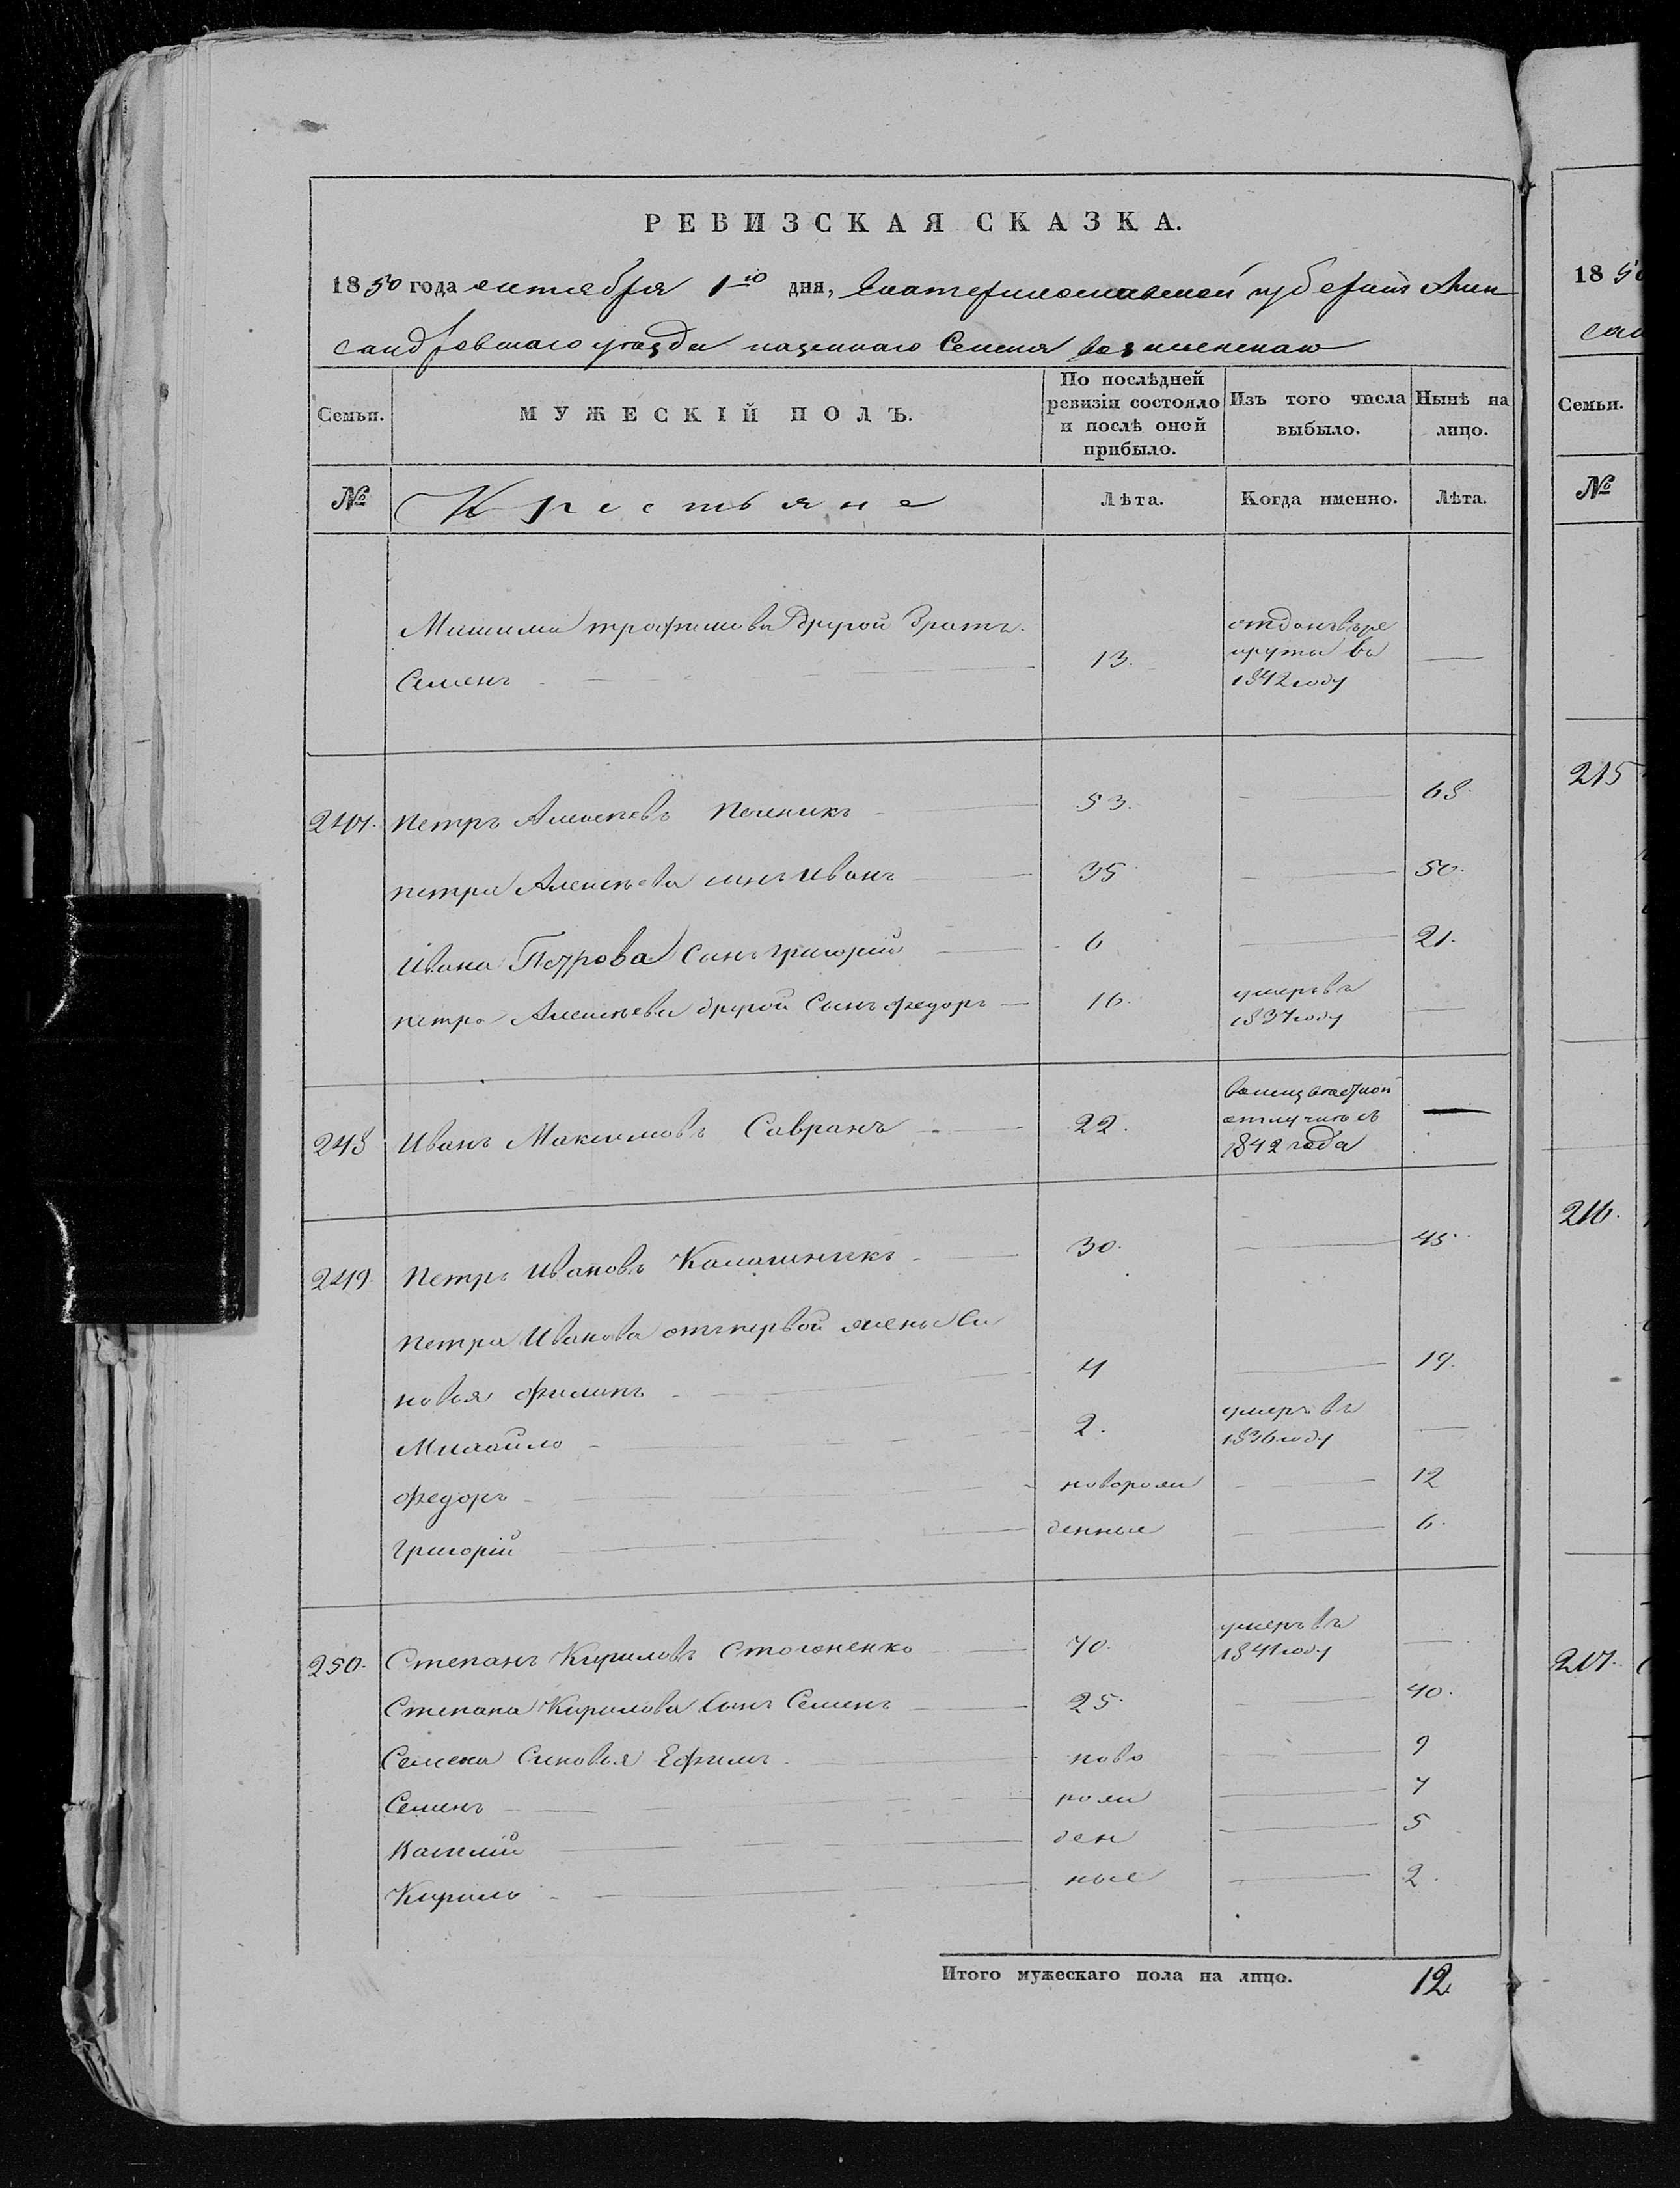 РЕВИЗСКАЯ СКАЗКА.
1850 года октября 1го дня, Екатеринославской губерніи Алек
сандровскаго уѣзда казеннаго Селенія Вознесенскаго
Семьи.
МУЖЕСКІЙ ПОЛЪ.
По послѣдней ревизіи состояло и послѣ оной прибыло.
Изъ того числа выбыло.
Нынѣ на лицо.
№ Крестьяне Лѣта. Когда именно. Лѣта.
Трофимова другой братъ
Семенъ 13. отданъ въ ре
круты въ
1842 году
247. Петръ Алексѣевъ 53. 68.
Петра Алексѣева сынъ Иванъ 35 50.
Ивана Петрова Сынъ Григорій 6 21.
Петра Алексѣева другой Сынъ Федоръ 16. умеръ въ
1837 году
248 Иванъ Максимовъ Савранъ 22. отлучить съ
1842 года
249. Петръ Ивановъ Калашникъ 30. 45.
Петра Иванова отъ первой жены Си
новья Филипъ 4 19.
Михайло 2. умеръ въ
1836 году
Федоръ новорож 12
Григорій денные 6.
250. Степанъ Кириловъ Стогоненко 70. умеръ въ
1841 году
Степана Кирилова Сынъ Семенъ 25. 40.
Семена Сыновья Ефимъ ново 9
Семенъ рож 7
Василій ден 5
Кирило ные 2.
Итого мужескаго пола на лицо. 12.
1850
Семьи.
№
215
216.
217.